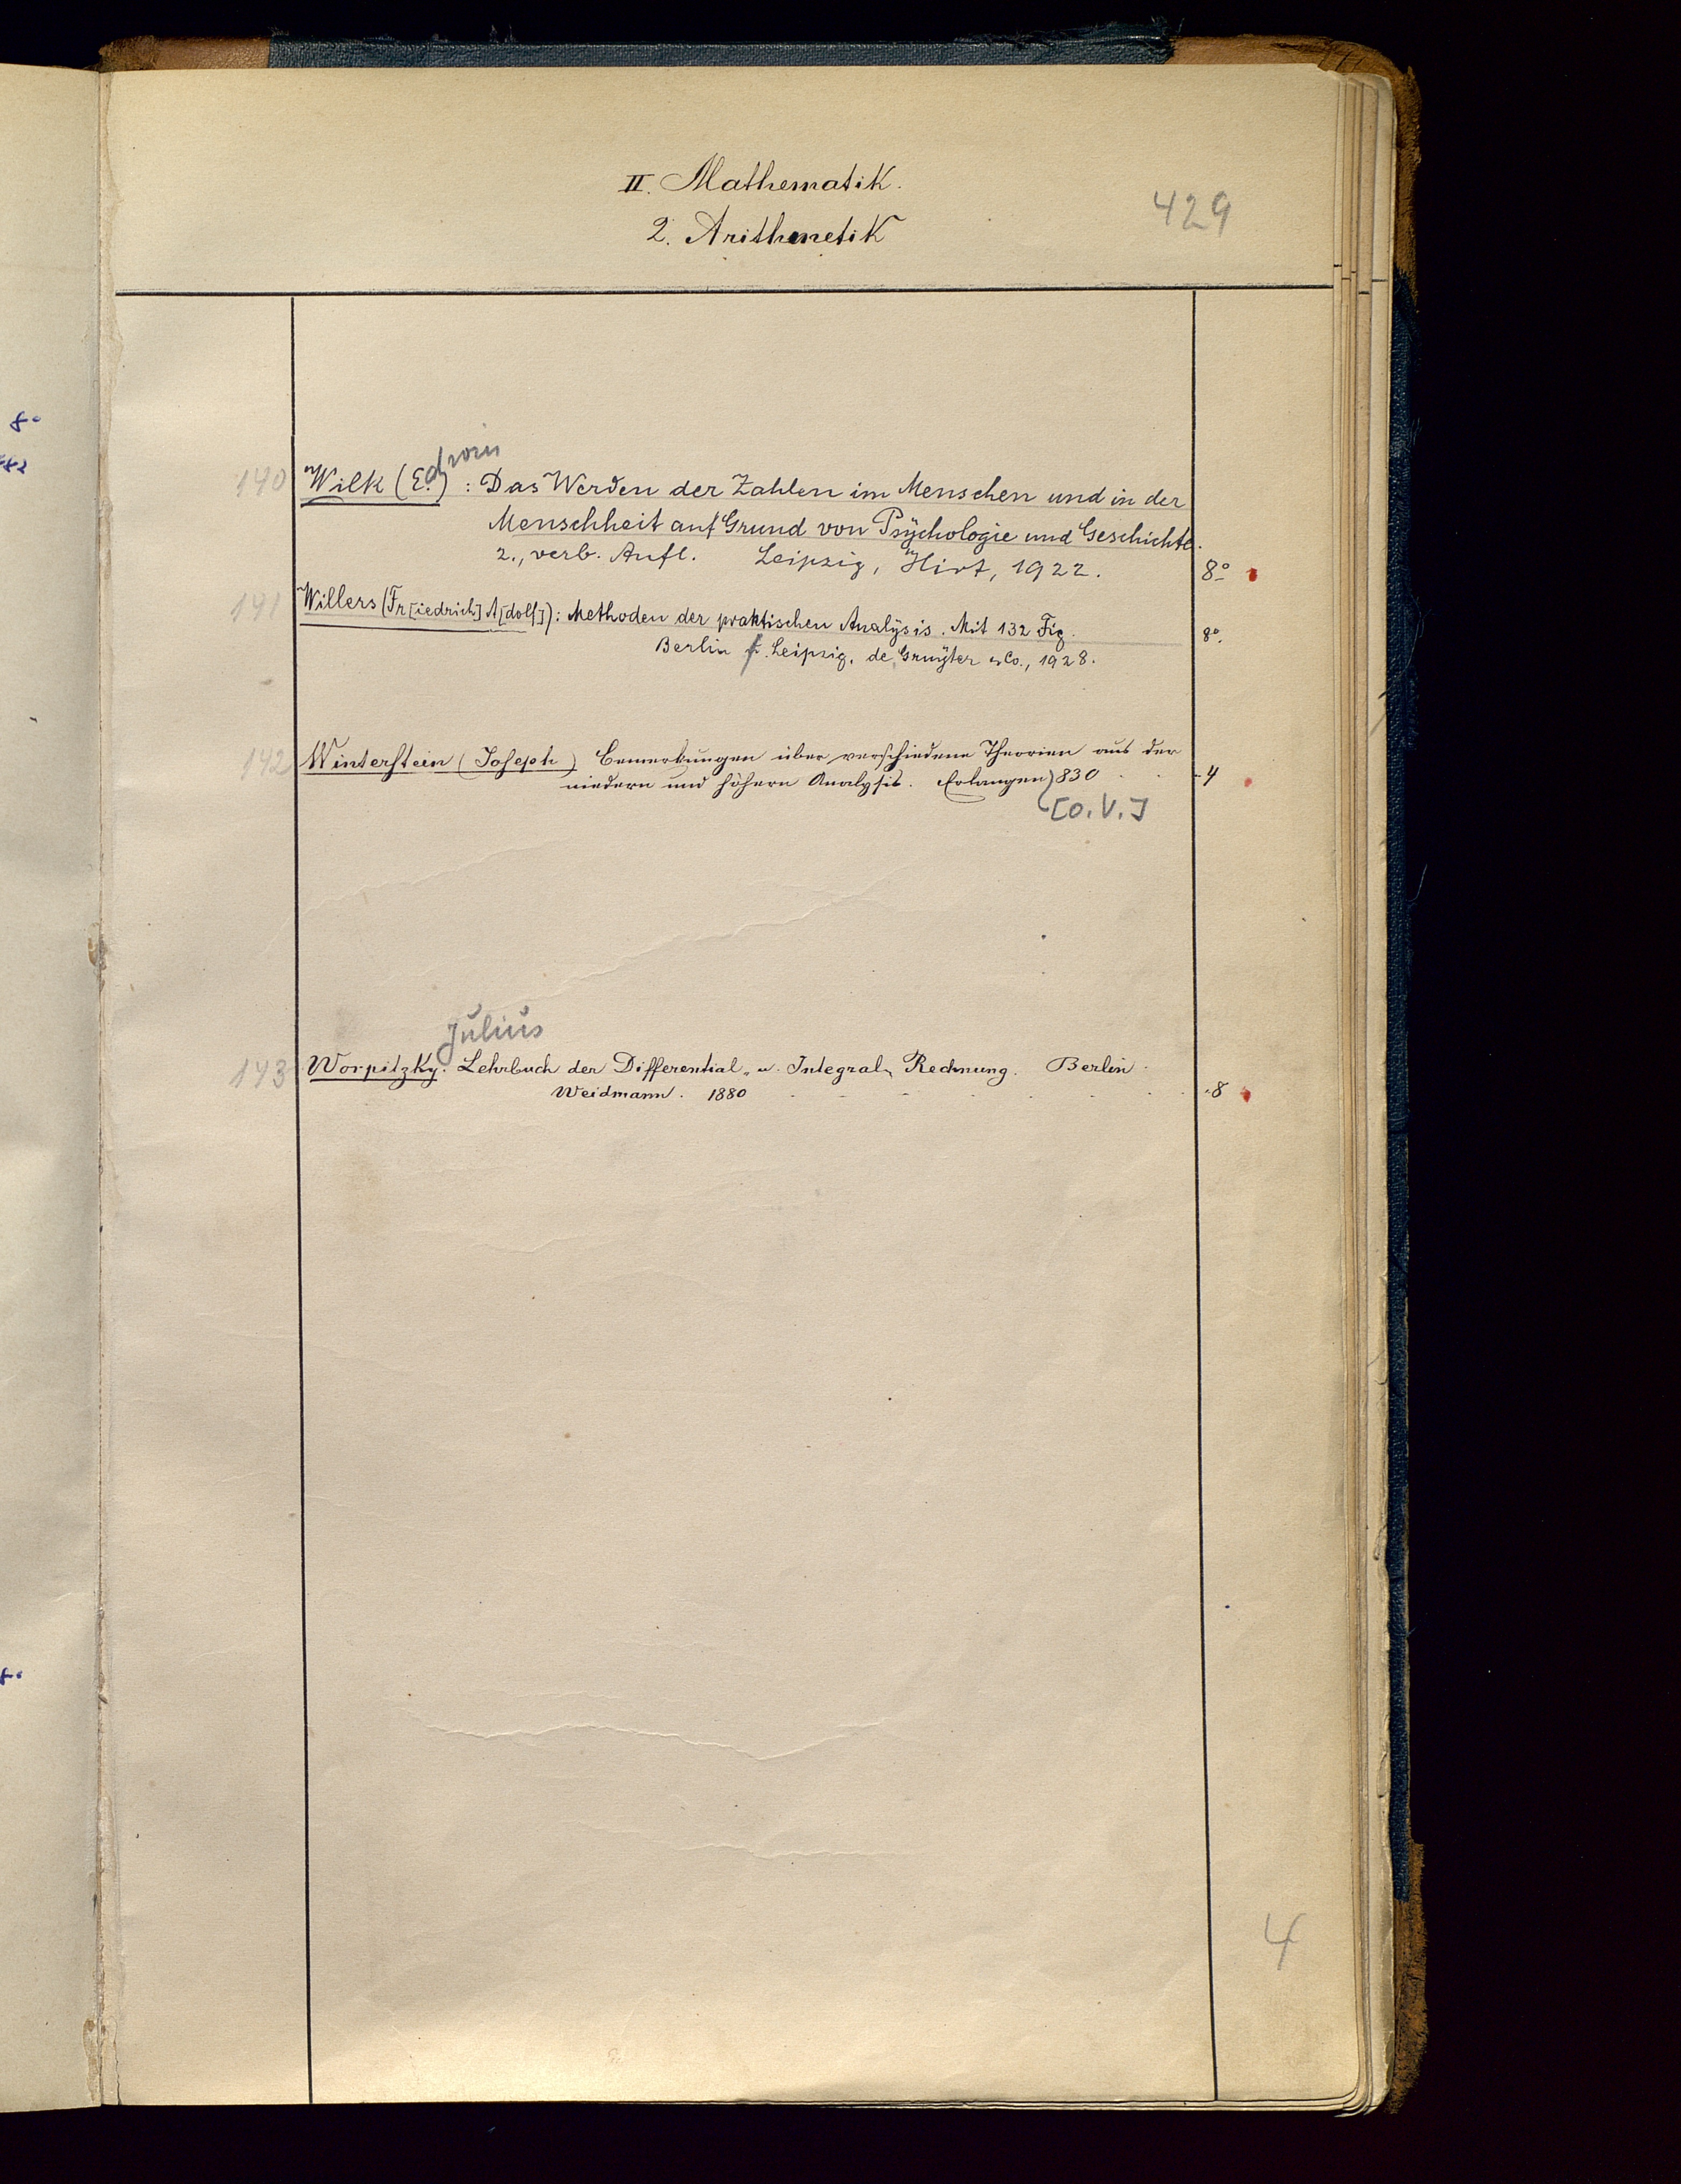 II. Mathematik.
2. Arithmetik
429
8°
82
dwin
140 Wilk (E.) : Das Werden der Zahlen im Menschen und in der
Menschheit auf Grund von Psÿchologie und Geschichte.
2., verb. Aufl. Leipzig, Hirt, 1922. 8°
141 Willers (Fr[iedrich] A[dolf]) : Methoden der praktischen Analÿsis. Mit 132 Fig.
Berlin u. Leipzig, de Gruÿter & Co., 1928. 8°.
142 Winterstein (Joseph) Bemerkungen über verschiedene Theorien aus der
niedern und höhern Analysis. Erlangen 830 4
[O.V.]
Julius
143 Worpitzky. Lehrbuch der Differential- u. Integral-Rechnung. Berlin.
Weidmann. 1880 8
8°
4